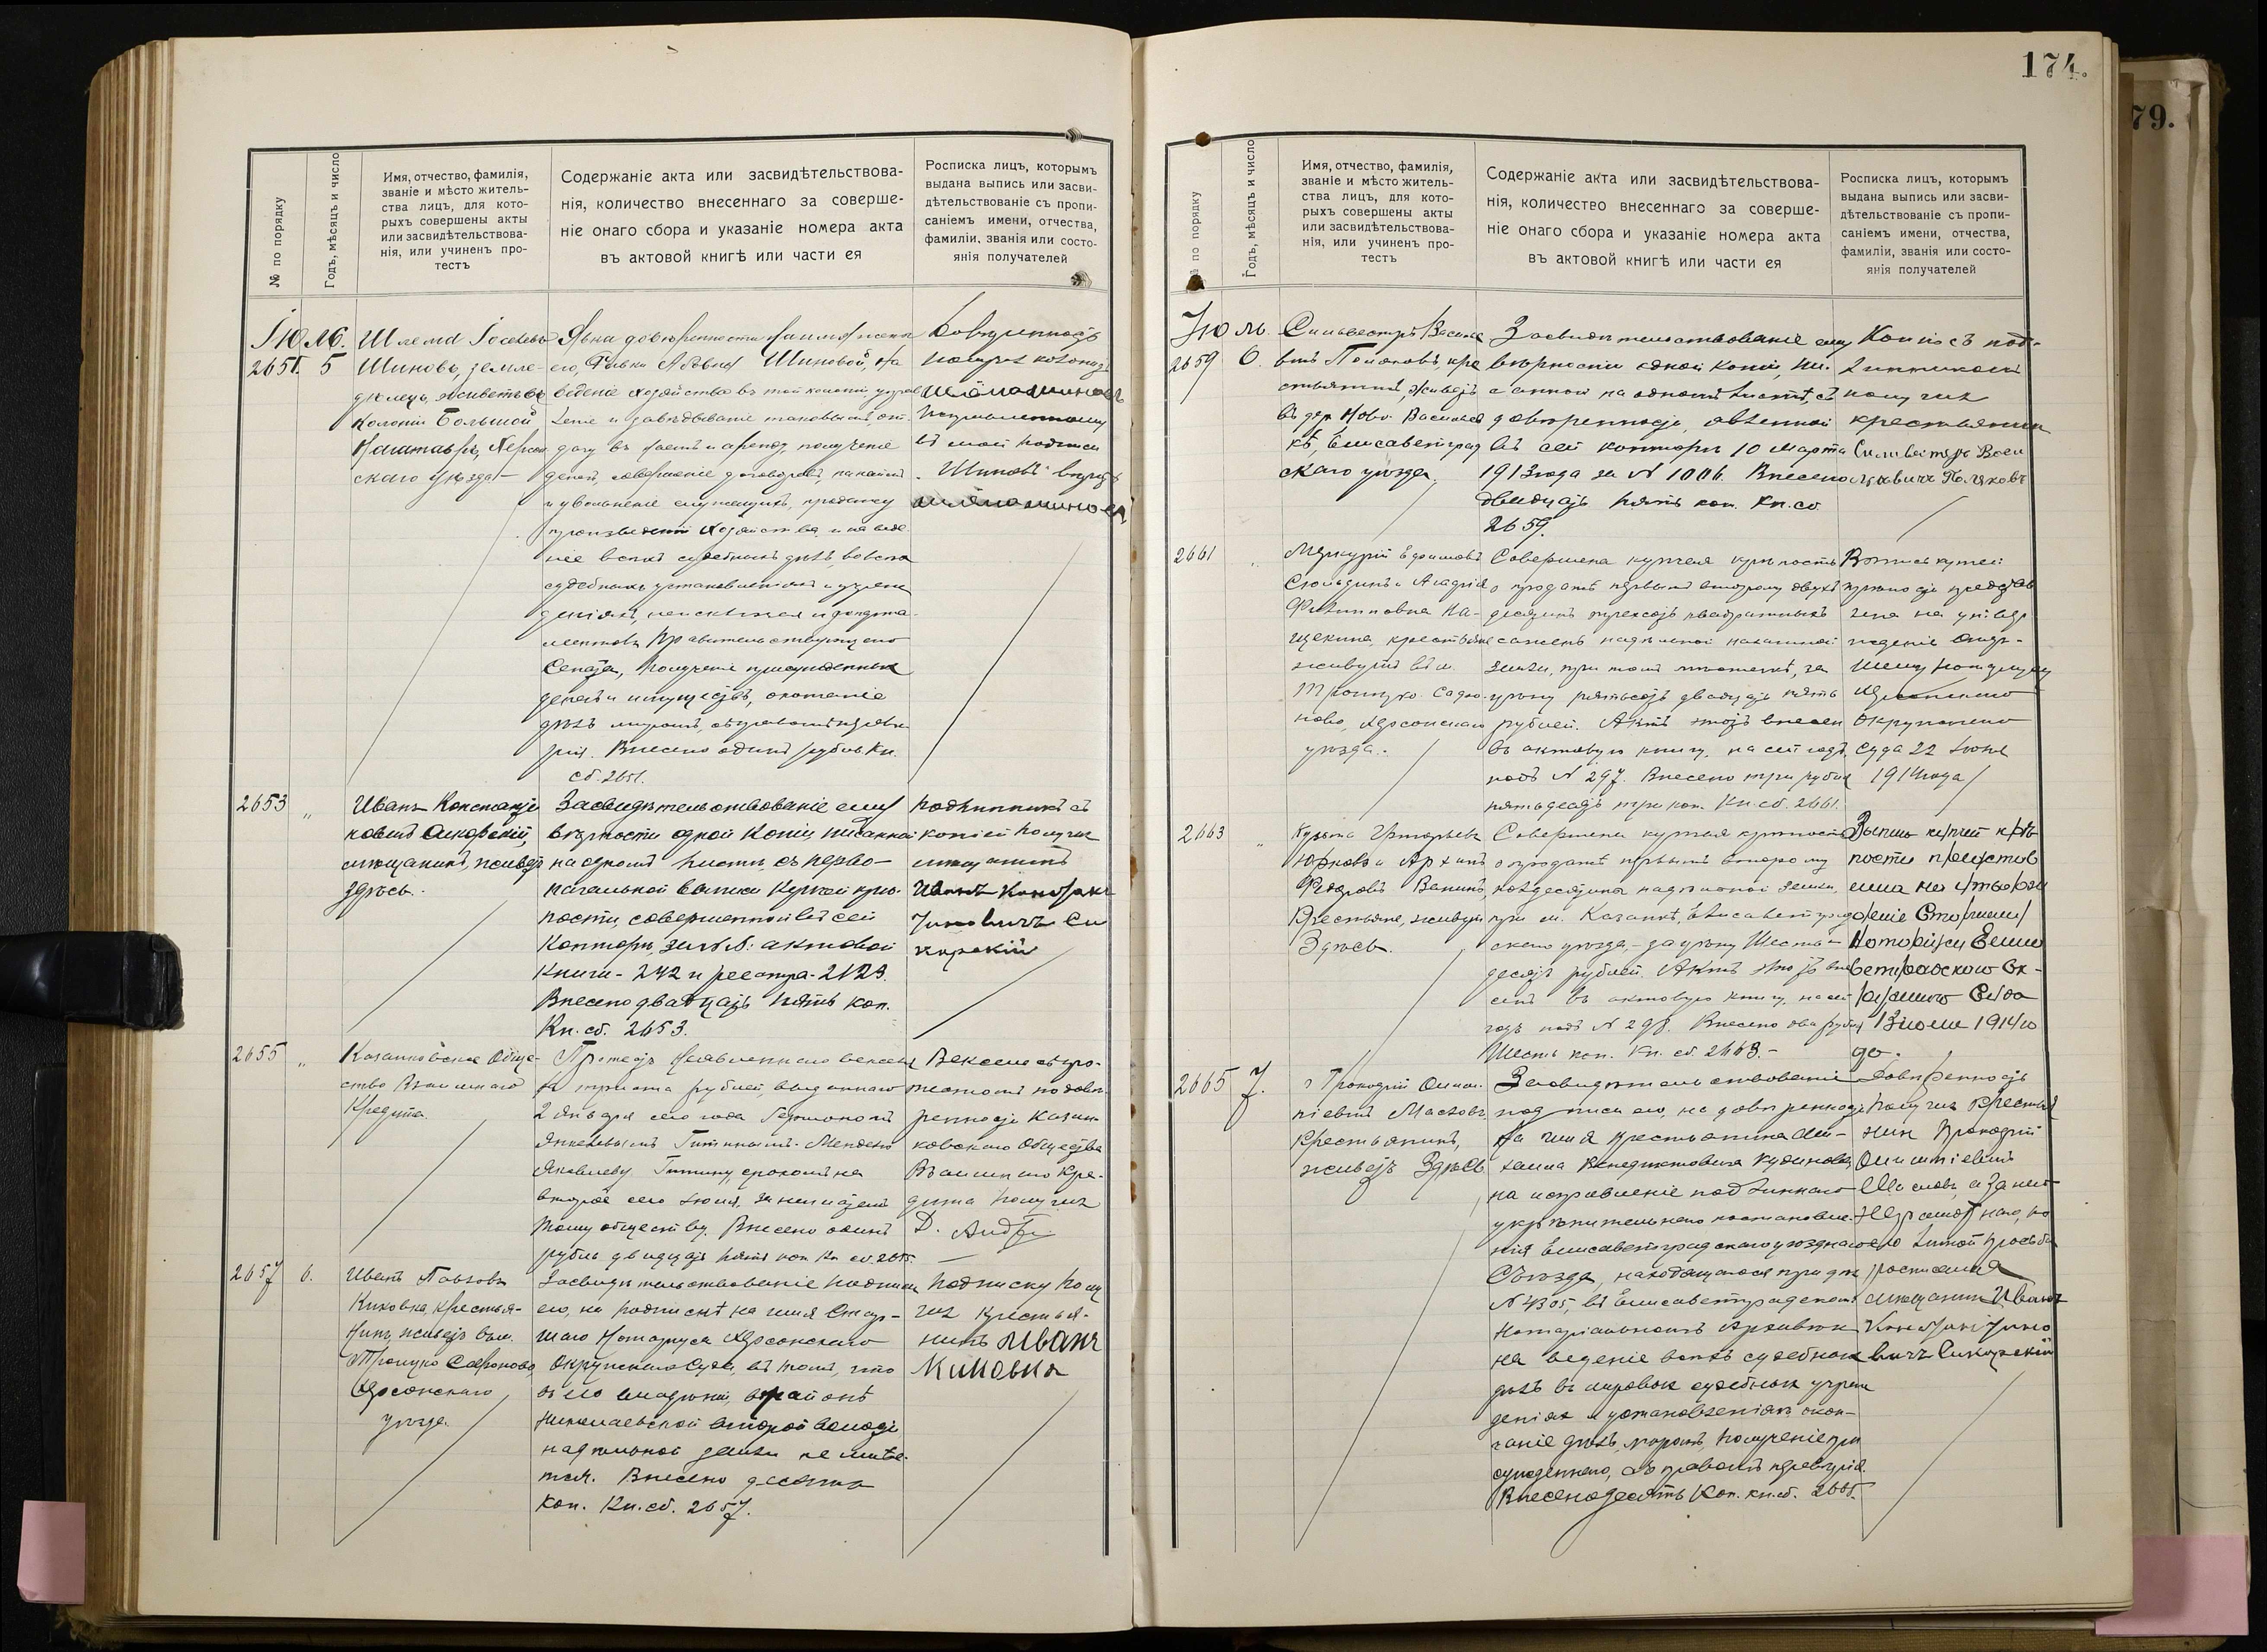 174.
79.
№ по порядку
Годъ, мѣсяцъ и число
Имя, отчество, фамилія,
званіе и мѣсто житель-
ства лицъ, для кото-
рыхъ совершены акты
или засвидѣтельствова-
нія, или учиненъ про-
тестъ
Содержаніе акта или засвидѣтельствова-
нія, количество внесеннаго за соверше-
ніе онаго сбора и указаніе номера акта
въ актовой книгѣ или части ея
Росписка лицъ, которымъ
выдана выпись или засви-
дѣтельствованіе съ пропи-
саніемъ имени, отчества,
фамиліи, званія или состо-
янія получателей
Іюль.
2651. 5
Шлема Іосевовъ
Шиновъ, земле-
дѣлецъ, живетъ въ
колоніи Большой
Нагатавкѣ, Херсон
скаго уѣзда
Явка довѣренности
его, Ривки Шиновой, на
веденіе хозяйства въ той колоніи, управ
леніе и завѣдываніе таковымъ, от
дачу въ наемъ и аренду, полученіе
денегъ, совершеніе договоровъ, наемъ
и увольненіе служащихъ, продажу
произведеній хозяйства и на веде
ніе всѣхъ судебныхъ дѣлъ, во всѣхъ
судебныхъ установленіяхъ и учреж
деніяхъ, не исключая и департа
ментовъ Правительствующаго
Сената, полученіе присужденныхъ
денегъ и имуществъ, окончаніе
дѣлъ миромъ, съ правомъ передовѣ
рія. Внесено одинъ рубль Кн.
сб. 2651.
Довѣренность
получилъ колонистъ
въ моей подписи
Шиновъ вѣрить
2653 „
Иванъ Константи
новичъ Сикорскій,
мѣщанинъ, живетъ
здѣсь.
Засвидѣтельствованіе ему
вѣрности одной копіи, писанной
на одномъ листѣ, съ перво-
начальной выписи купчей крѣ-
пости, совершенной въ сей
Конторѣ, за №№: актовой
Книги - 242 и реестра - 2123.
Внесено двадцать пять коп.
Кн. сб. 2653.
Подлинникъ съ
копіей получилъ
мѣщанинъ
Иванъ Констан
тиновичъ Си
корскій
2655 „
Казанковское Обще-
ство Взаимнаго
Кредита.
Протестъ неявленнаго векселя
на триста рублей, выданнаго
2 Января сего года
Яковлеву Гитину, срокомъ на
второе сего Іюля,
тому обществу. Внесено одинъ
рубль двадцать пять коп Кн сб. 2655.
Вексель съ про-
тестомъ по довѣ-
ренности Казан-
ковскаго Общества
Взаимнаго Кре-
дита получилъ
2657 6.
Иванъ Павловъ
Киковка, крестья-
нинъ, живетъ въ м.
Троицко Сафоново,
Херсонскаго
уѣзда.
Засвидѣтельствованіе подписи
его, на подпискѣ на имя Стар-
шаго Нотаріуса Херсонскаго
Окружнаго Суда, въ томъ, что
въ его владѣніи, въ районѣ
Николаевской второй волости
надѣльной земли не имѣе-
тся. Внесено десять
коп. Кн. сб. 2657.
Подписку полу
чилъ крестья-
нинъ Иванъ
Киковка
по порядку
Годъ, мѣсяцъ и число
Имя, отчество, фамилія,
званіе и мѣсто житель-
ства лицъ, для кото-
рыхъ совершены акты
или засвидѣтельствова-
нія, или учиненъ про-
тестъ
Содержаніе акта или засвидѣтельствова-
нія, количество внесеннаго за соверше-
ніе онаго сбора и указаніе номера акта
въ актовой книгѣ или части ея
Росписка лицъ, которымъ
выдана выпись или засви-
дѣтельствованіе съ пропи-
саніемъ имени, отчества,
фамиліи, званія или состо-
янія получателей
Іюль.
2659 6.
Сильвестръ Василье
вичъ Поляковъ, кре
стьянинъ, живетъ
въ дер. Ново-Васильев
кѣ, Елисаветград
скаго уѣзда.
Засвидѣтельствованіе ему
вѣрности одной копіи, пи-
санной на одномъ листѣ, съ
довѣренности, явленной
въ сей конторѣ 10 Марта
1913 года за № 1006. Внесено
двадцать пять коп. Кн. сб
2659.
Копію съ под-
линникомъ
получилъ
крестьянин
Сильвестръ Васи
льевичъ Поляковъ
2661 „
Меркурій Ефимовъ
Филипповна На-
щекина, крестьяне
живущіе въ м.
Троицко-Сафо-
ново, Херсонскаго
уѣзда.
Совершена купчая крѣпость
о продажѣ первымъ второму двухъ
десятинъ трехсотъ квадратныхъ
саженъ надѣльной пахатной
земли, при томъ мѣстечкѣ, за
цѣну пятьсотъ двадцать пять
рублей. Актъ этотъ внесен
въ актовую книгу, на сей годъ,
подъ № 297. Внесено три рубля
пятьдесятъ три коп. Кн. сб. 2661.
Выпись купчей
крѣпости представ
лена на утверж
деніе Стар-
шему Нотаріусу
Херсонскаго
Окружнаго
Суда 22 Іюля
1914 года
2663 „
Кузьма Григорьевъ
Юрковъ и Архипъ
Федоровъ Ванинъ,
Крестьяне, живущ
Здѣсь.
Совершена купчая крѣпость
о продажѣ первымъ второму
полдесятины надѣльной земли,
при м. Казанкѣ, Елисаветград
скаго уѣзда, - за цѣну Шесть-
десятъ рублей. Актъ этотъ вне
сенъ въ актовую книгу, на сей
годъ подъ № 298. Внесено два рубля
Шесть коп. Кн. сб. 2663.-
Выпись купчей крѣ
пости представ
лена на утверж
деніе Старшему
Нотаріусу Елиса
ветградскаго Ок-
ружнаго Суда
Іюля 1914 го
да.
2665 7.
Прокофій Они-
сіевичъ Масловъ
Крестьянинъ,
живетъ Здѣсь
Засвидѣтельствованіе
подписи его, на довѣренности
на имя крестьянина Ми-
хаила Венедиктовича Кудинова,
на исправленіе подлиннаго
укрѣпительнаго постановле-
нія Елисаветградскаго уѣзднаго
Съѣзда, находящагося при дѣлѣ
№ 4305, въ Елисаветградскомъ
Нотаріальномъ Архивѣ и
на веденіе всѣхъ судебныхъ
дѣлъ въ мировыхъ судебныхъ учреж
деніяхъ и установленіяхъ окон-
чаніе дѣлъ миромъ, полученіе при
сужденнаго, съ правомъ передовѣрія.
Внесено десять Коп. кн. сб. 2665.
Довѣренность
получилъ Крестья
нинъ Прокофій
Масловъ, а за не
неграмотнаго, по
его личной просьбѣ
росписался
мѣщанинъ Иванъ
Константино
вичъ Сикорскій